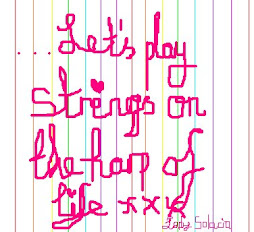 ...Let's play
strings on
the harp of
life xxx